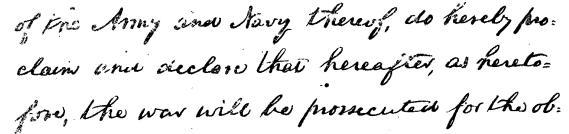 of the Army and Navy thereof, do hereby pro:
claim and declare that hereafter, as hereto=
fore, the war will be prossecuted for the ob: